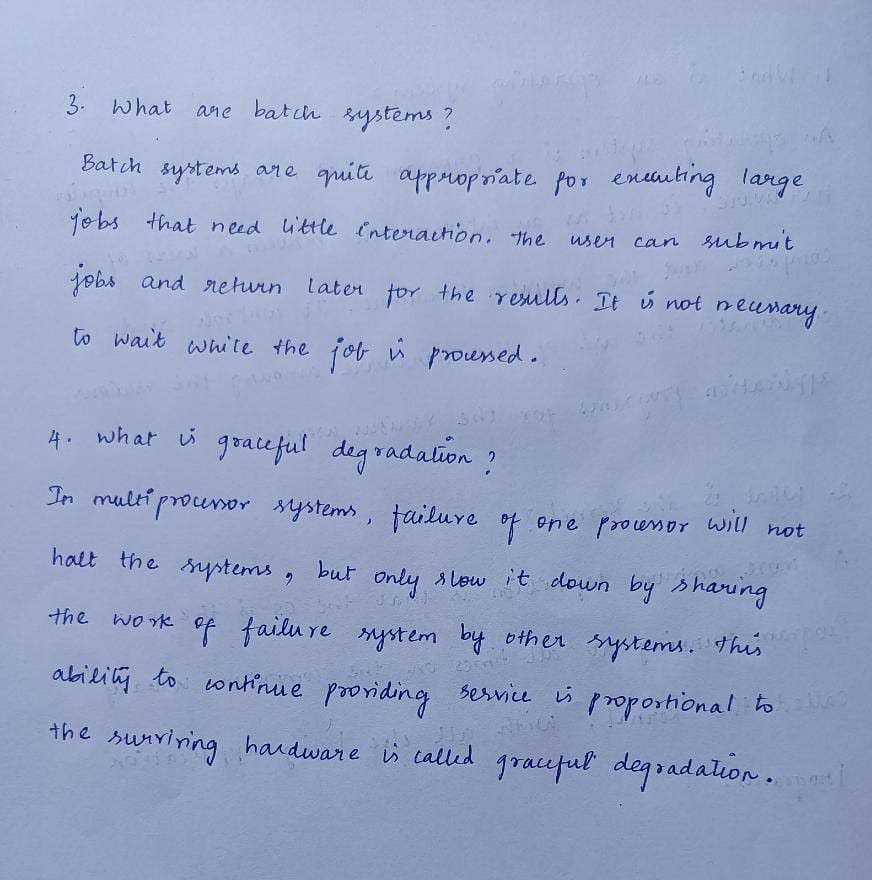 3. What are batch systems?
Batch systems are quite appropriate for executing large
jobs that need little interaction. The user can submit
jobs and return later for the results. It is not necessary
to wait while the job is processed.
4. What is graceful degradation?
In multiprocessor systems, failure of one processor will not
halt the systems, but only slow it down by sharing
the work of failure system by other systems. This
ability to continue providing service is proportional to
the surviving hardware is called graceful degradation.